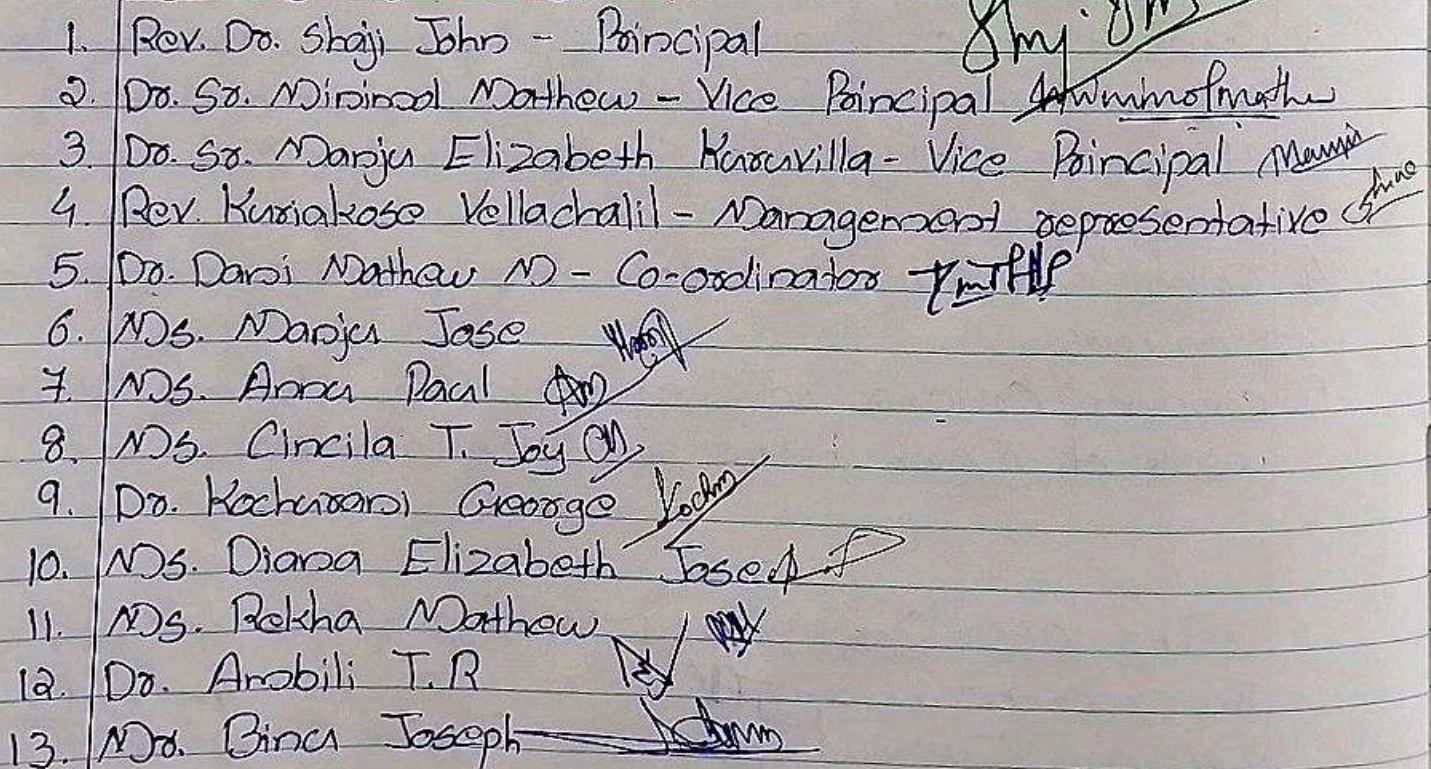 1. Rev. Dr. Shaji John - Principal
2. Dr. Sr. Mirimol Mathew - Vice Principal
3. Dr. Sr. Manju Elizabeth Kuruvilla - Vice Principal
4. Rev. Kuriakose Vellachalil - Management representative
5. Dr. Dani Mathew M - Co-ordinator
6. Ms. Manju Jose
7. Ms. Annu Paul
8. Ms. Cincila T. Joy
9. Dr. Kochurani George
10. Ms. Diana Elizabeth Jose
11. Ms. Rekha Mathew
12. Dr. Ambili T.R
13. Mr. Binu Joseph